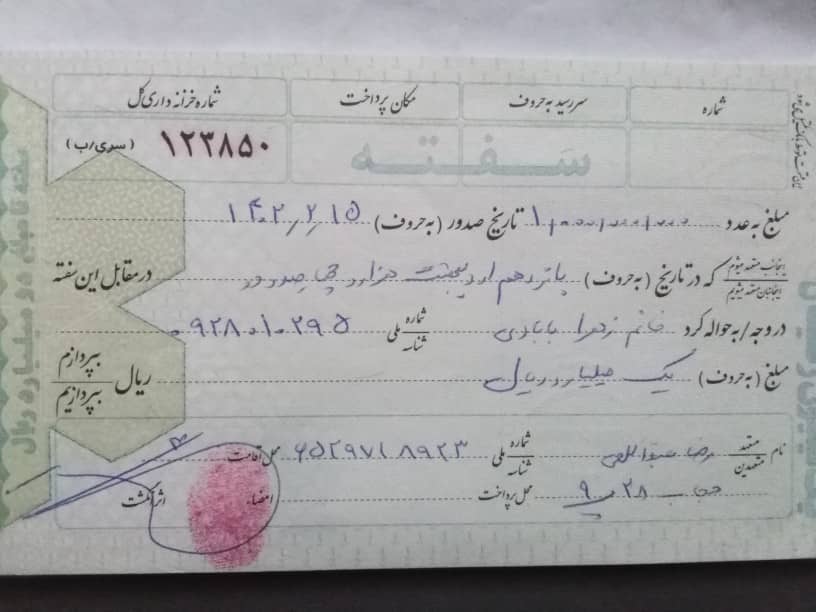 شماره
سررسید به حروف
مکان پرداخت
شماره خزانه داری کل
سفته
۱۲۳۸۵۰ (سری/ب)
مبلغ به عدد ۱,۰۰۰,۰۰۰,۰۰۰ تاریخ صدور (به حروف) ۱۴۰۲/۲/۱۵
اینجانب متعهد میشوم
اینجانبان متعهد میشویم
که در تاریخ (به حروف) پانزدهم اردیبهشت هزار و در مقابل این سفته
در وجه/به حواله کرد خانم زهرا بابادی شماره ملی شناسه ۰۹۲۸۰۱۰۲۹۵
مبلغ (به حروف) یک میلیارد ریال ریال بپردازم بپردازیم
نام متعهد متعهدین رضا شماره ملی شناسه ۶۵۲۹۷۱۸۹۲۳ محل اقامت
۲۸ محل پرداخت امضاء اثر انگشت
سفته تا مبلغ دو میلیارد ریال